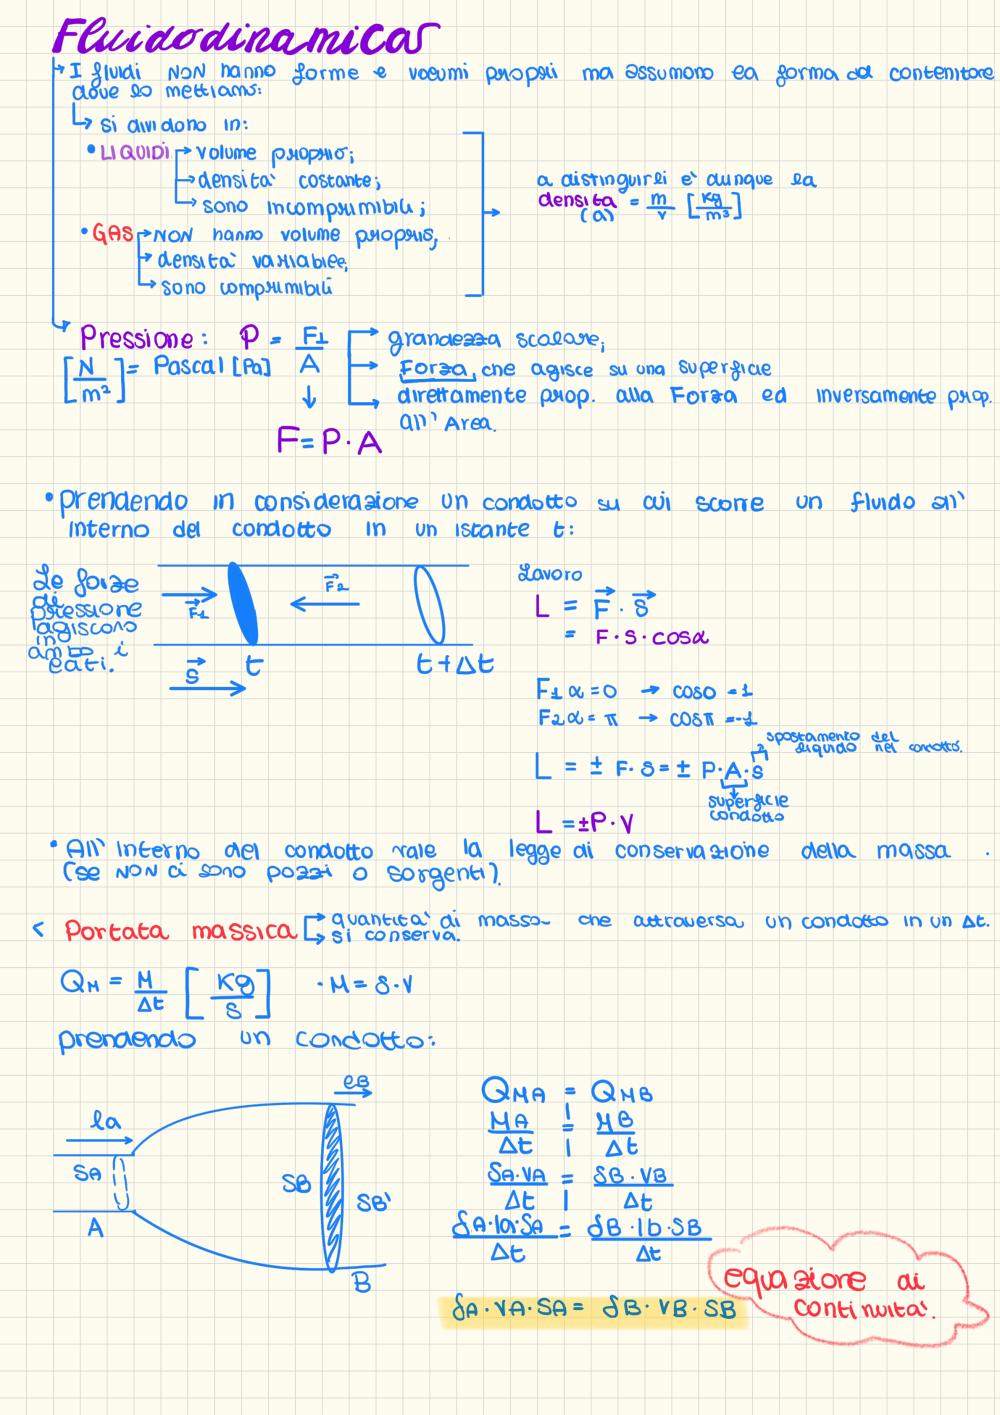 Fluidodinamica
I fluidi NON hanno forme e volumi propri ma assumono la forma del contenitore
dove lo mettiamo:
si dividono in:
• LIQUIDI → volume proprio;
→ densita' costante;
→ sono incomprimibili;
• GAS → NON hanno volume proprio;
→ densita' variabile;
→ sono comprimibili
a distinguirli e' dunque la
densita = m/v [Kg/m³]
(d)
Pressione: P = F⊥/A
[N/m²] = Pascal [Pa]
→ grandezza scalare;
→ Forza, che agisce su una superficie
→ direttamente prop. alla Forza ed inversamente prop.
all' Area.
↓
F = P · A
• prendendo in considerazione un condotto su cui scorre un fluido all'
interno del condotto in un istante t:
Le forze
di
pressione
agiscono
in
ambo i
lati.
F1
F2
s
t
t+Δt
Lavoro
L = F · s
= F · s · cosα
F1 α = 0 → cos0 = 1
F2 α = π → cosπ = -1
spostamento del
liquido nel condotto.
L = ± F · s = ± P · A · s
superficie
condotto
L = ±P · V
• All' interno del condotto vale la legge di conservazione della massa .
(se NON ci sono pozzi o sorgenti).
< Portata massica → quantita' di massa che attraversa un condotto in un Δt.
→ si conserva.
QM = M/Δt [Kg/s] · M = δ · V
prendendo un condotto:
la
SA
A
lB
SB
SB'
B
QMA = QMB
MA/Δt = MB/Δt
δA · VA/Δt = δB · VB/Δt
δA · la · SA/Δt = δB · lb · SB/Δt
δA · VA · SA = δB · VB · SB
equazione di
continuita'.